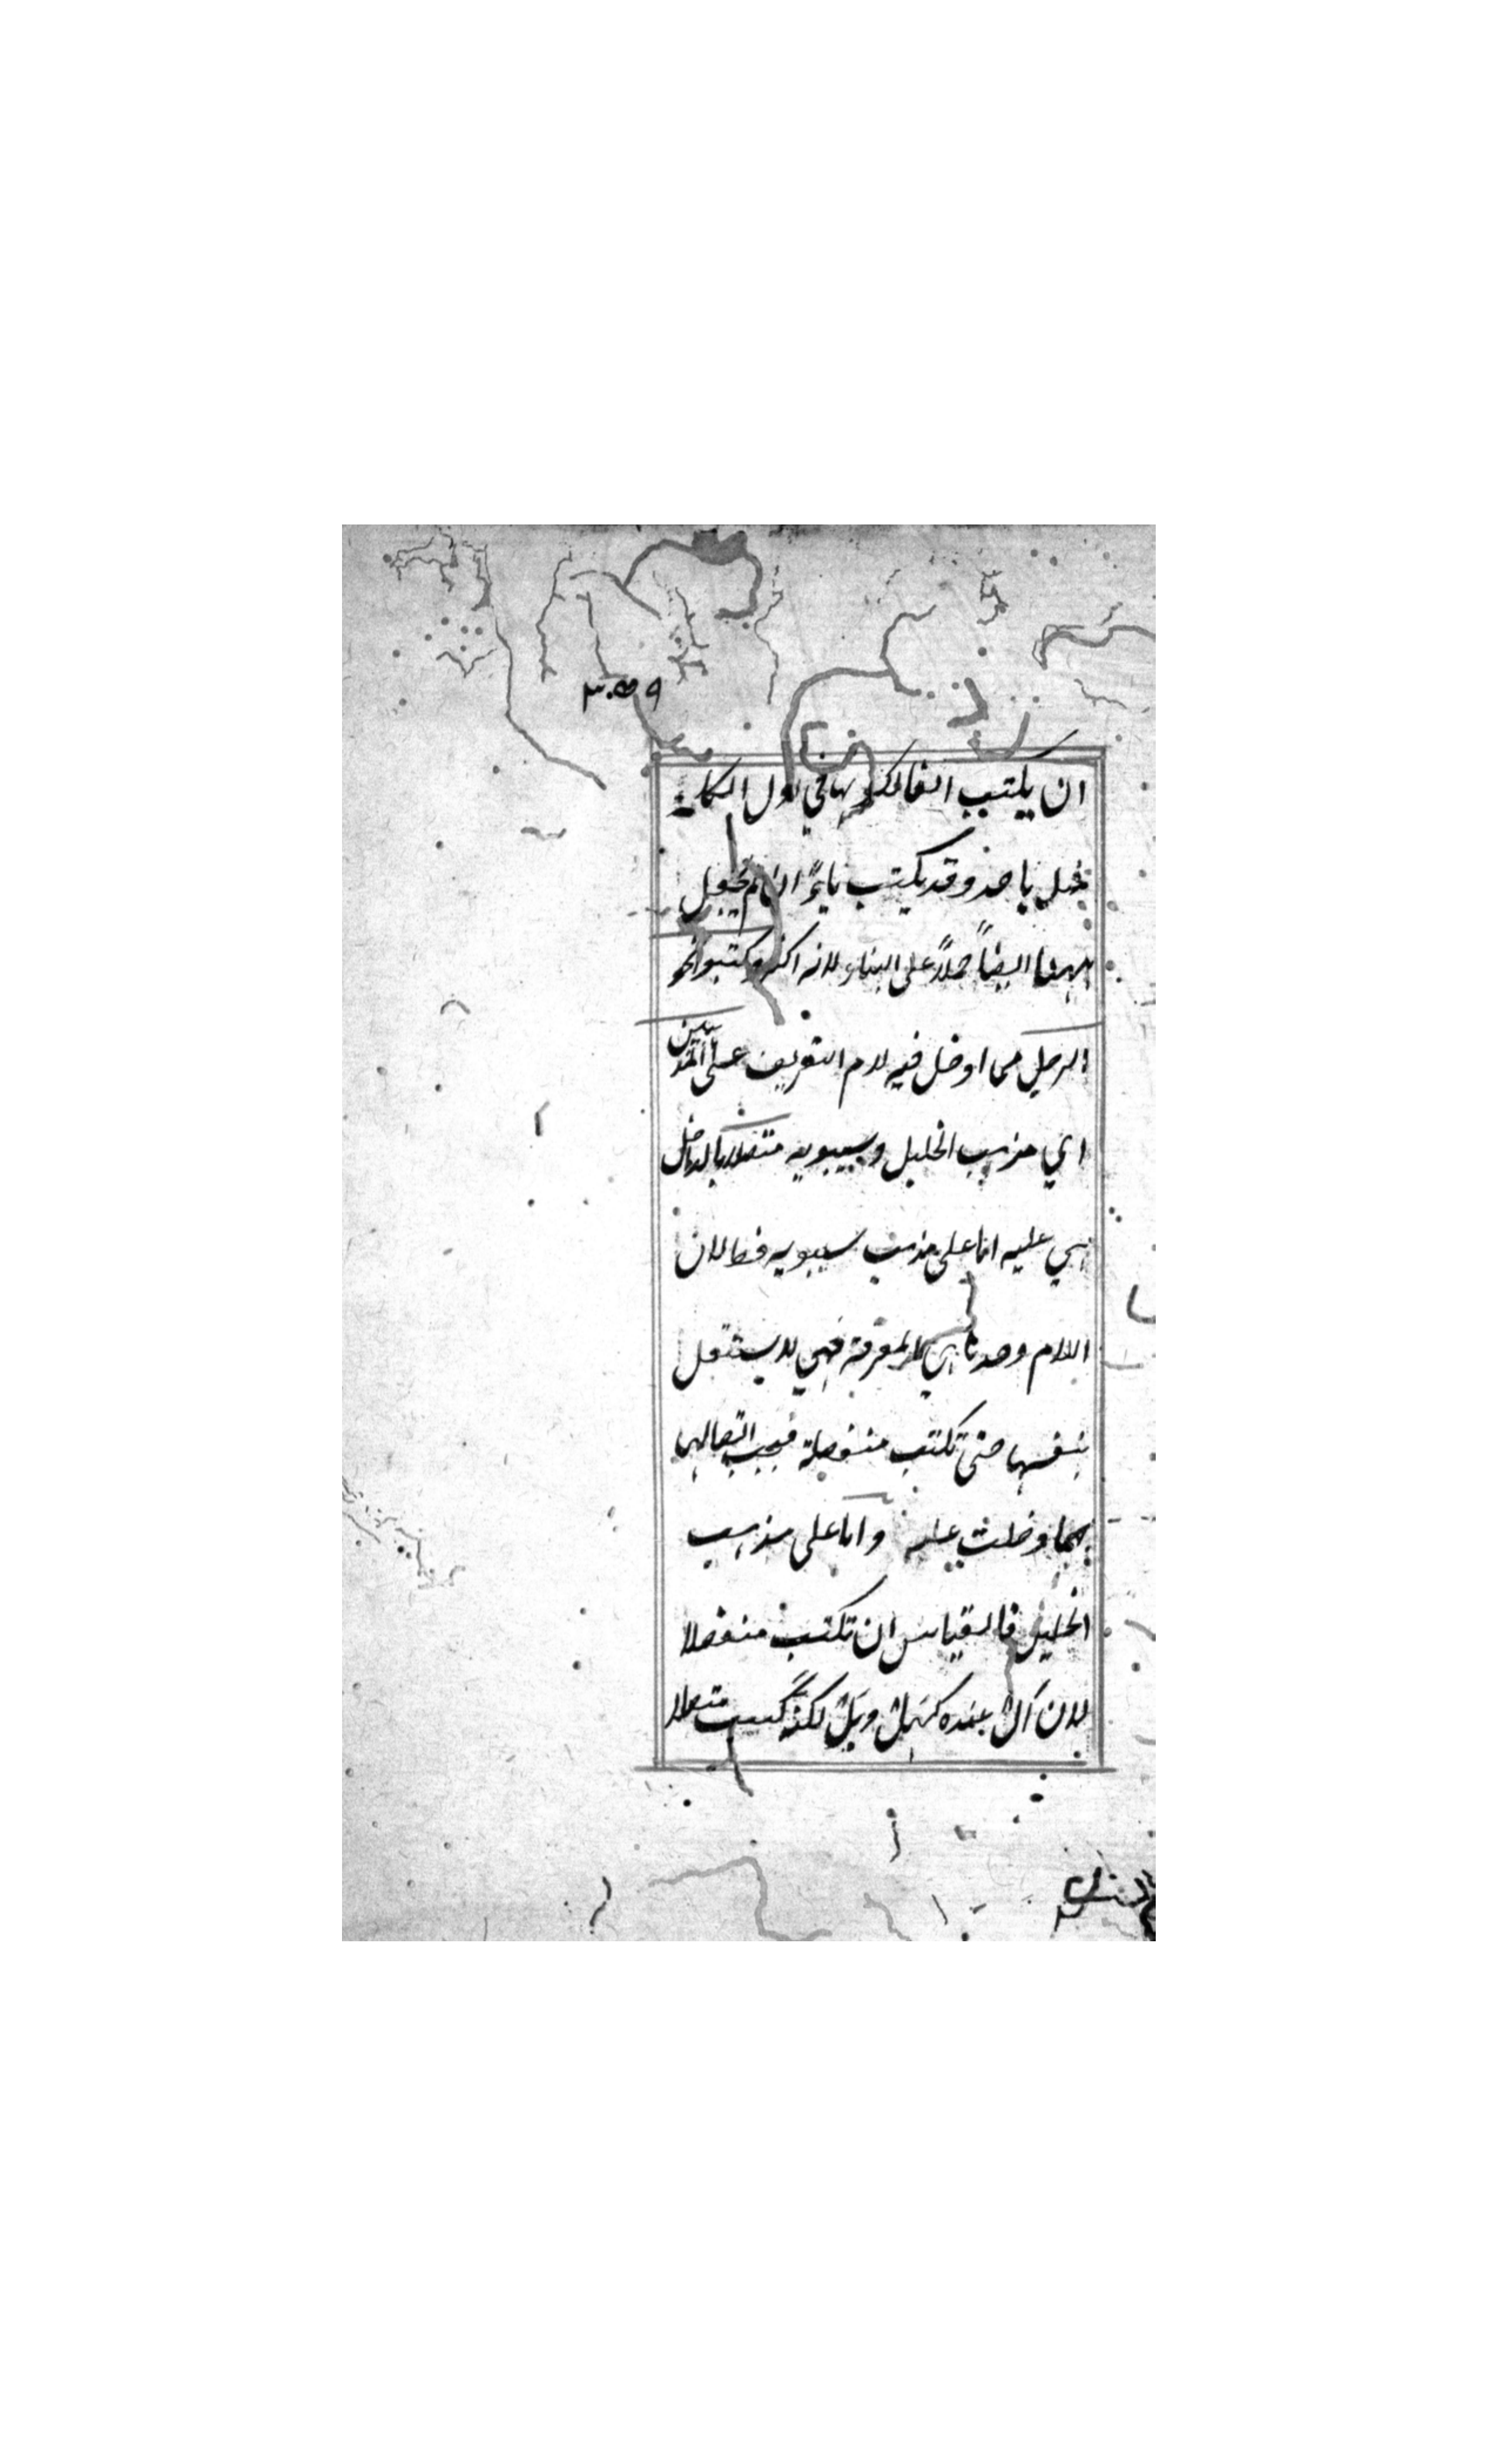 ان يكتب الفا لكونها في اول الكلمة
مثل باحد وقد يكتب ياءً ان لم يجعل
ههنا ايضاً حملاً على البناء لانه اكثر وكتبوا نحو
الرجل مما دخل فيه لام التعريف على المذهبين
اي مذهب الخليل وسيبويه متصلا بالداخل
هي عليه اما على مذهب سيبويه فظ لان
اللام وحدها هي المعرفة فهي لا يستقل
بنفسها حتى تكتب منفصلة فيجب اتصالها
بما دخلت عليه واما على مذهب
الخليل فالقياس ان تكتب منفصلا
لان ال عنده كهل وبل لكنه كتبت متصلا